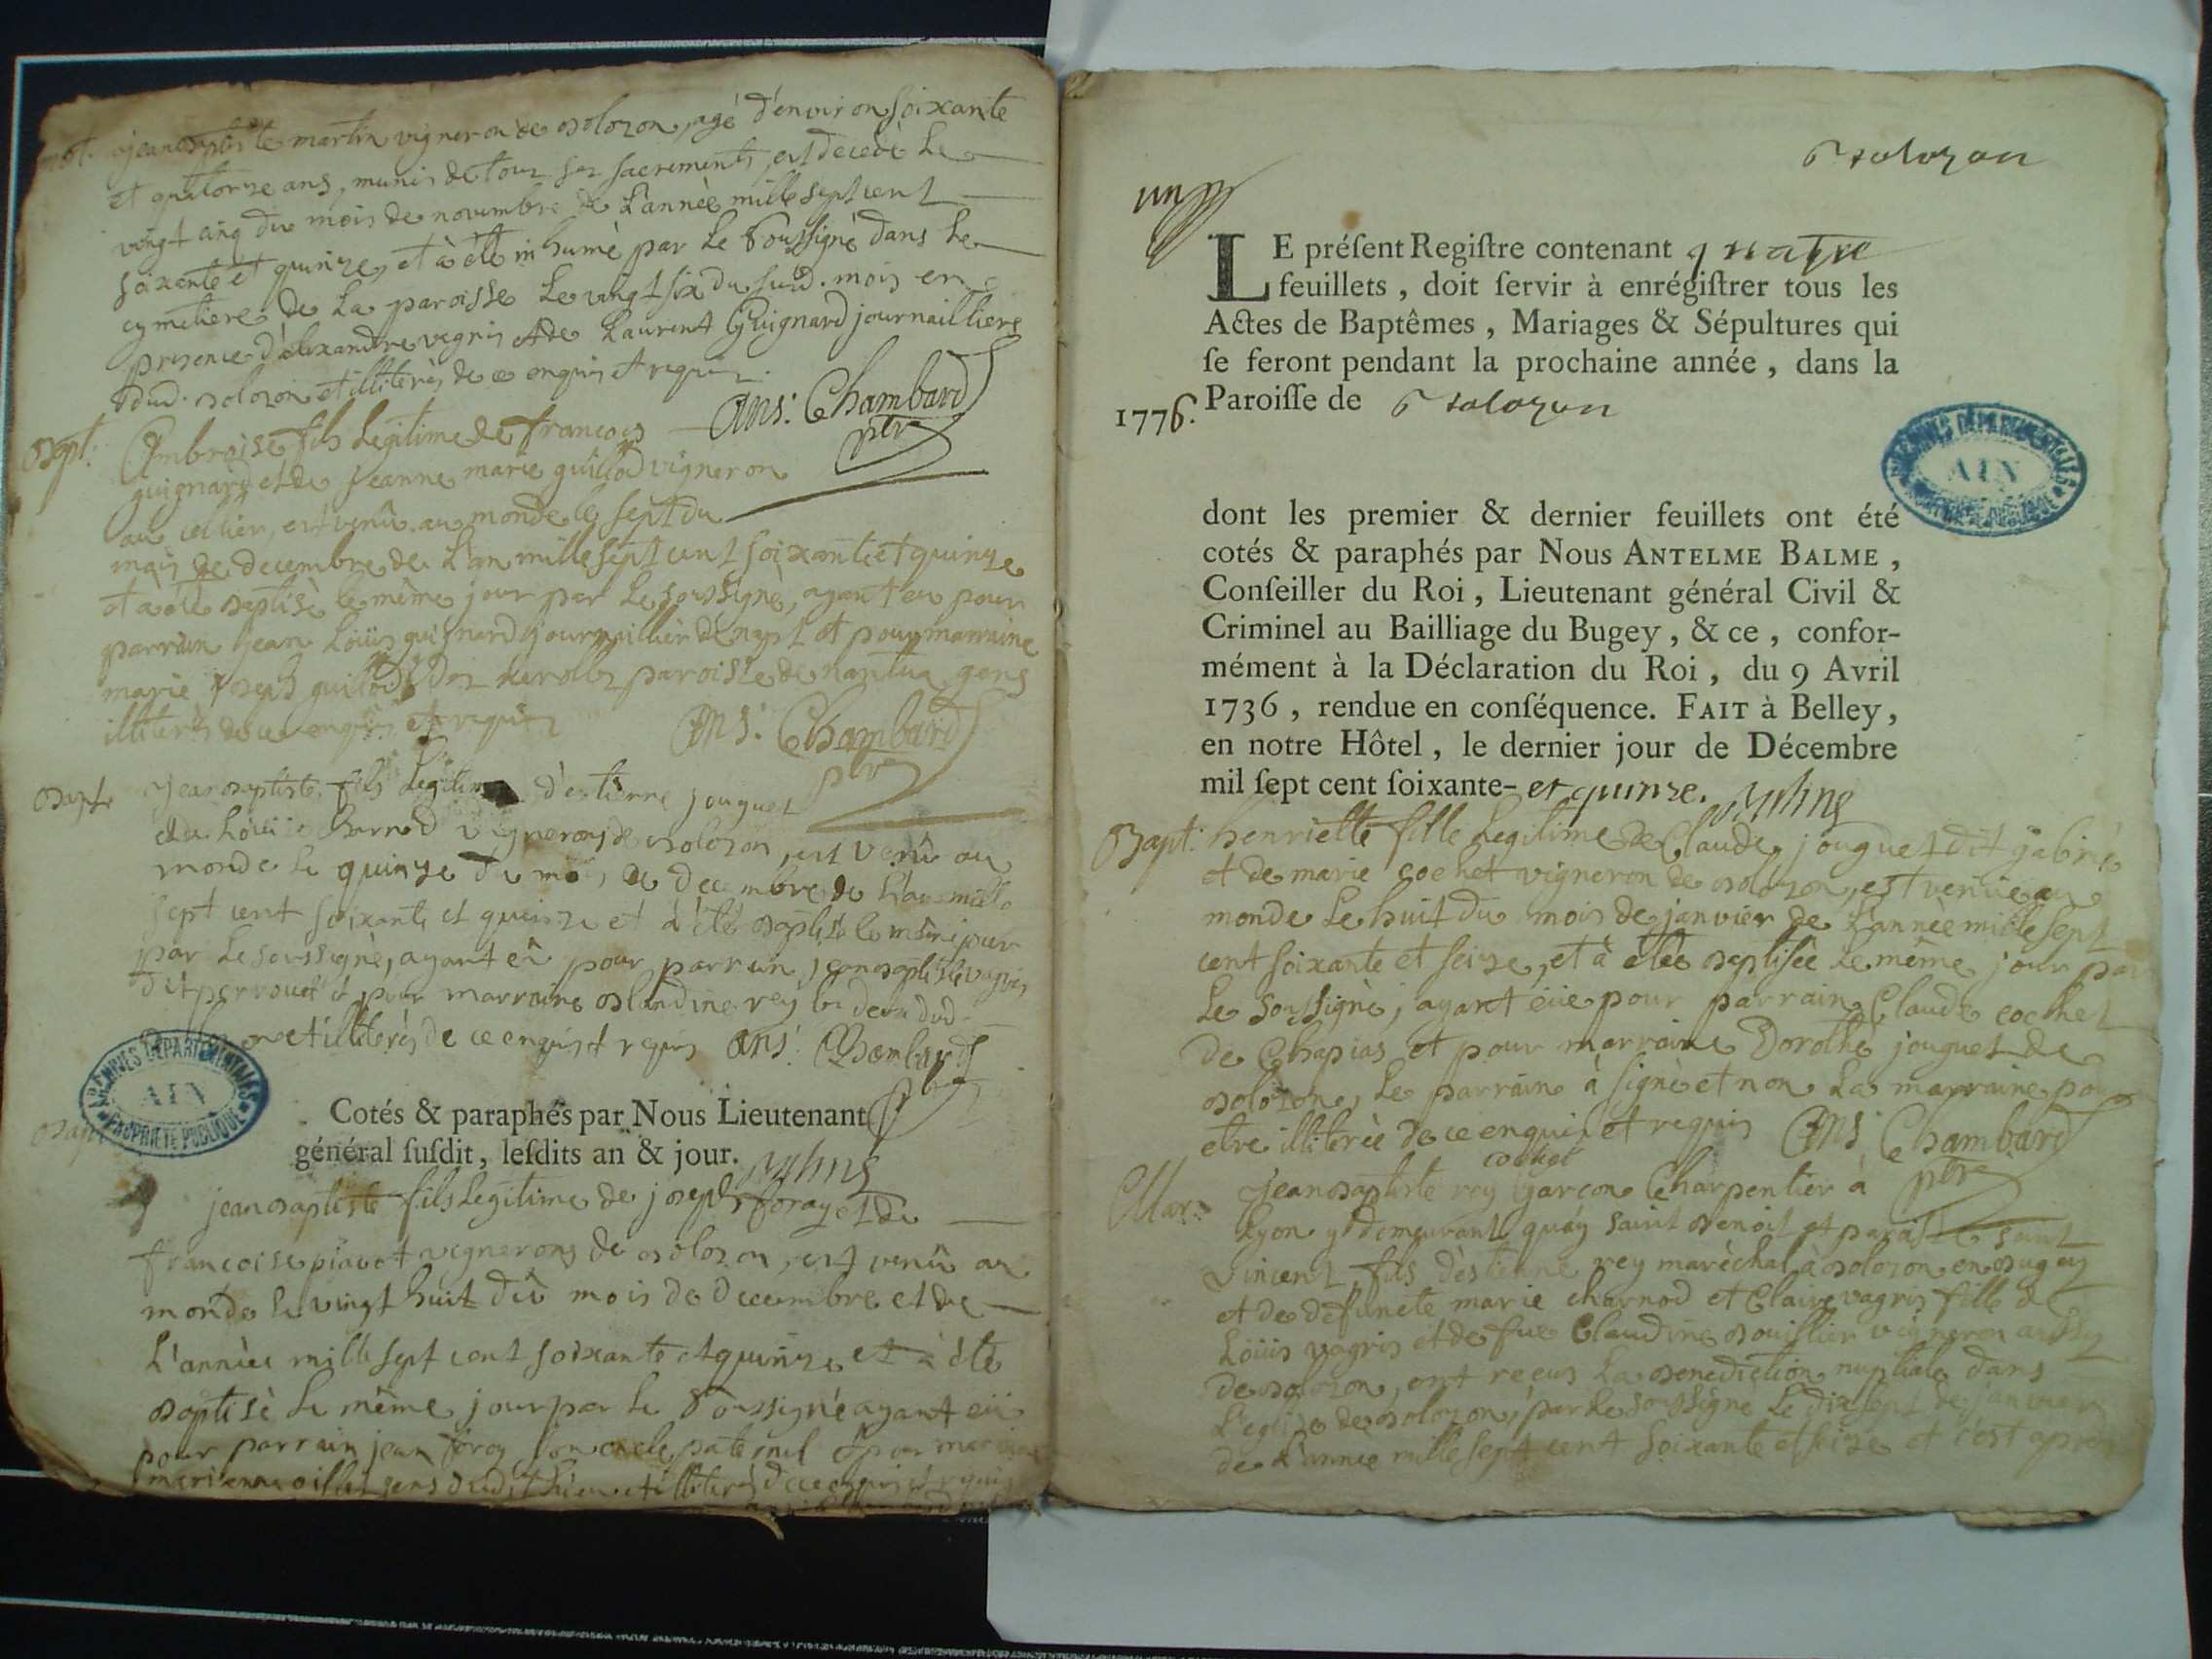 jean baptiste martin vigneron de bolozon, agé d'environ soixante
et quatorze ans, munis de tous ses sacrements, est decedè Le
vingt cinq du mois de novembre de L'année mille sept cent
soixante et quinze, et à été inhumè par Le soussignè dans Le
cymetiere de La paroisse Le vingt six du susd. mois en
presence d'alexandre vagris et de Laurent Guignard journailliers
dud. bolozon et illiterès de ce enquis et requis.
Ans: Chambard
ptre
Bapt: Ambroise fils Legitime de francois
guignard et de jeanne marie guillod vigneron
au cellier, est venû au monde le sept du
mois de decembre de L'an mille sept cent soixante et quinze
et à été baptisè le même jour par Le soussignè, ayant eu pour
parrain jean Loüis guignard journaillier de et pour marraine
marie joseph guillod paroisse de nantua gens
illiterès de ce enquis et requis
Ans: Chambard
ptre
Bapt jean baptiste fils Legitime d'estienne jouguet
et de Loüise charnod vignerons de bolozon, est venû au
monde le quinze du mois de decembre de L'an mille
sept cent soixante et quinze et à été baptisè le même jour
par Le soussignè, ayant eû pour parrain jean baptiste vagris
dit perrouet et pour marraine blandine rey les deux dud.
et illiterès de ce enquis et requis Ans: Chambard
ptre
ARCHIVES DÉPARTEMENTALES
AIN
PROPRIÉTÉ PUBLIQUE
Cotés & paraphés par Nous Lieutenant
général ſuſdit, leſdits an & jour.
Bapt
jean baptiste fils Legitime de joseph foray et de
francoise piavot vignerons de bolozon, est venû au
monde le vingt huit du mois de decembre et de
L'année mille sept cent soixante et quinze et à été
baptisè Le même jour par Le soussigné ayant eü
pour parrain jean foray son oncle paternel et pour marraine
marianne oillet gens dudit Lieu et illiterès de ce enquis et requis
Bolozon
un
LE préſent Regiſtre contenant quatre
feuillets, doit ſervir à enrégiſtrer tous les
Actes de Baptêmes, Mariages & Sépultures qui
ſe feront pendant la prochaine année, dans la
1776. Paroiſſe de Bolozon
ARCHIVES DÉPARTEMENTALES
AIN
PROPRIÉTÉ PUBLIQUE
dont les premier & dernier feuillets ont été
cotés & paraphés par Nous ANTELME BALME,
Conſeiller du Roi, Lieutenant général Civil &
Criminel au Bailliage du Bugey, & ce, confor-
mément à la Déclaration du Roi, du 9 Avril
1736, rendue en conſéquence. FAIT à Belley,
en notre Hôtel, le dernier jour de Décembre
mil ſept cent ſoixante- et quinze.
Bapt: henriette fille Legitime de Claude jouguet dit gabriè
et de marie cochet vigneron de bolozon, est venüe au
monde Le huit du mois de janvier de L'année mille sept
cent soixante et seize, et à étée baptisèe Le même jour par
Le soussignè, ayant eüe pour parrain Claude cochet
de Chapias et pour marraine Dorothè jouguet de
bolozon, Le parrain à signè et non La marraine pour
etre illiterèe de ce enquise et requis Ans: Chambard
cochet
ptre
Mar: jean baptiste rey garcon Charpentier à
Lyon y demeurant quay saint benoit et paroisse saint
vincent, fils d'estienne rey maréchal à bolozon en bugey
et de defuncte marie charnod et Claire vagris fille de
Loüis vagris et de fue Claudine bouillier vigneron aussy
de bolozon, ont recus La benediction nuptiale dans
L'eglise de bolozon, par Le soussignè Le dix sept de janvier
de L'année mille sept cent soixante et seize et c'est après